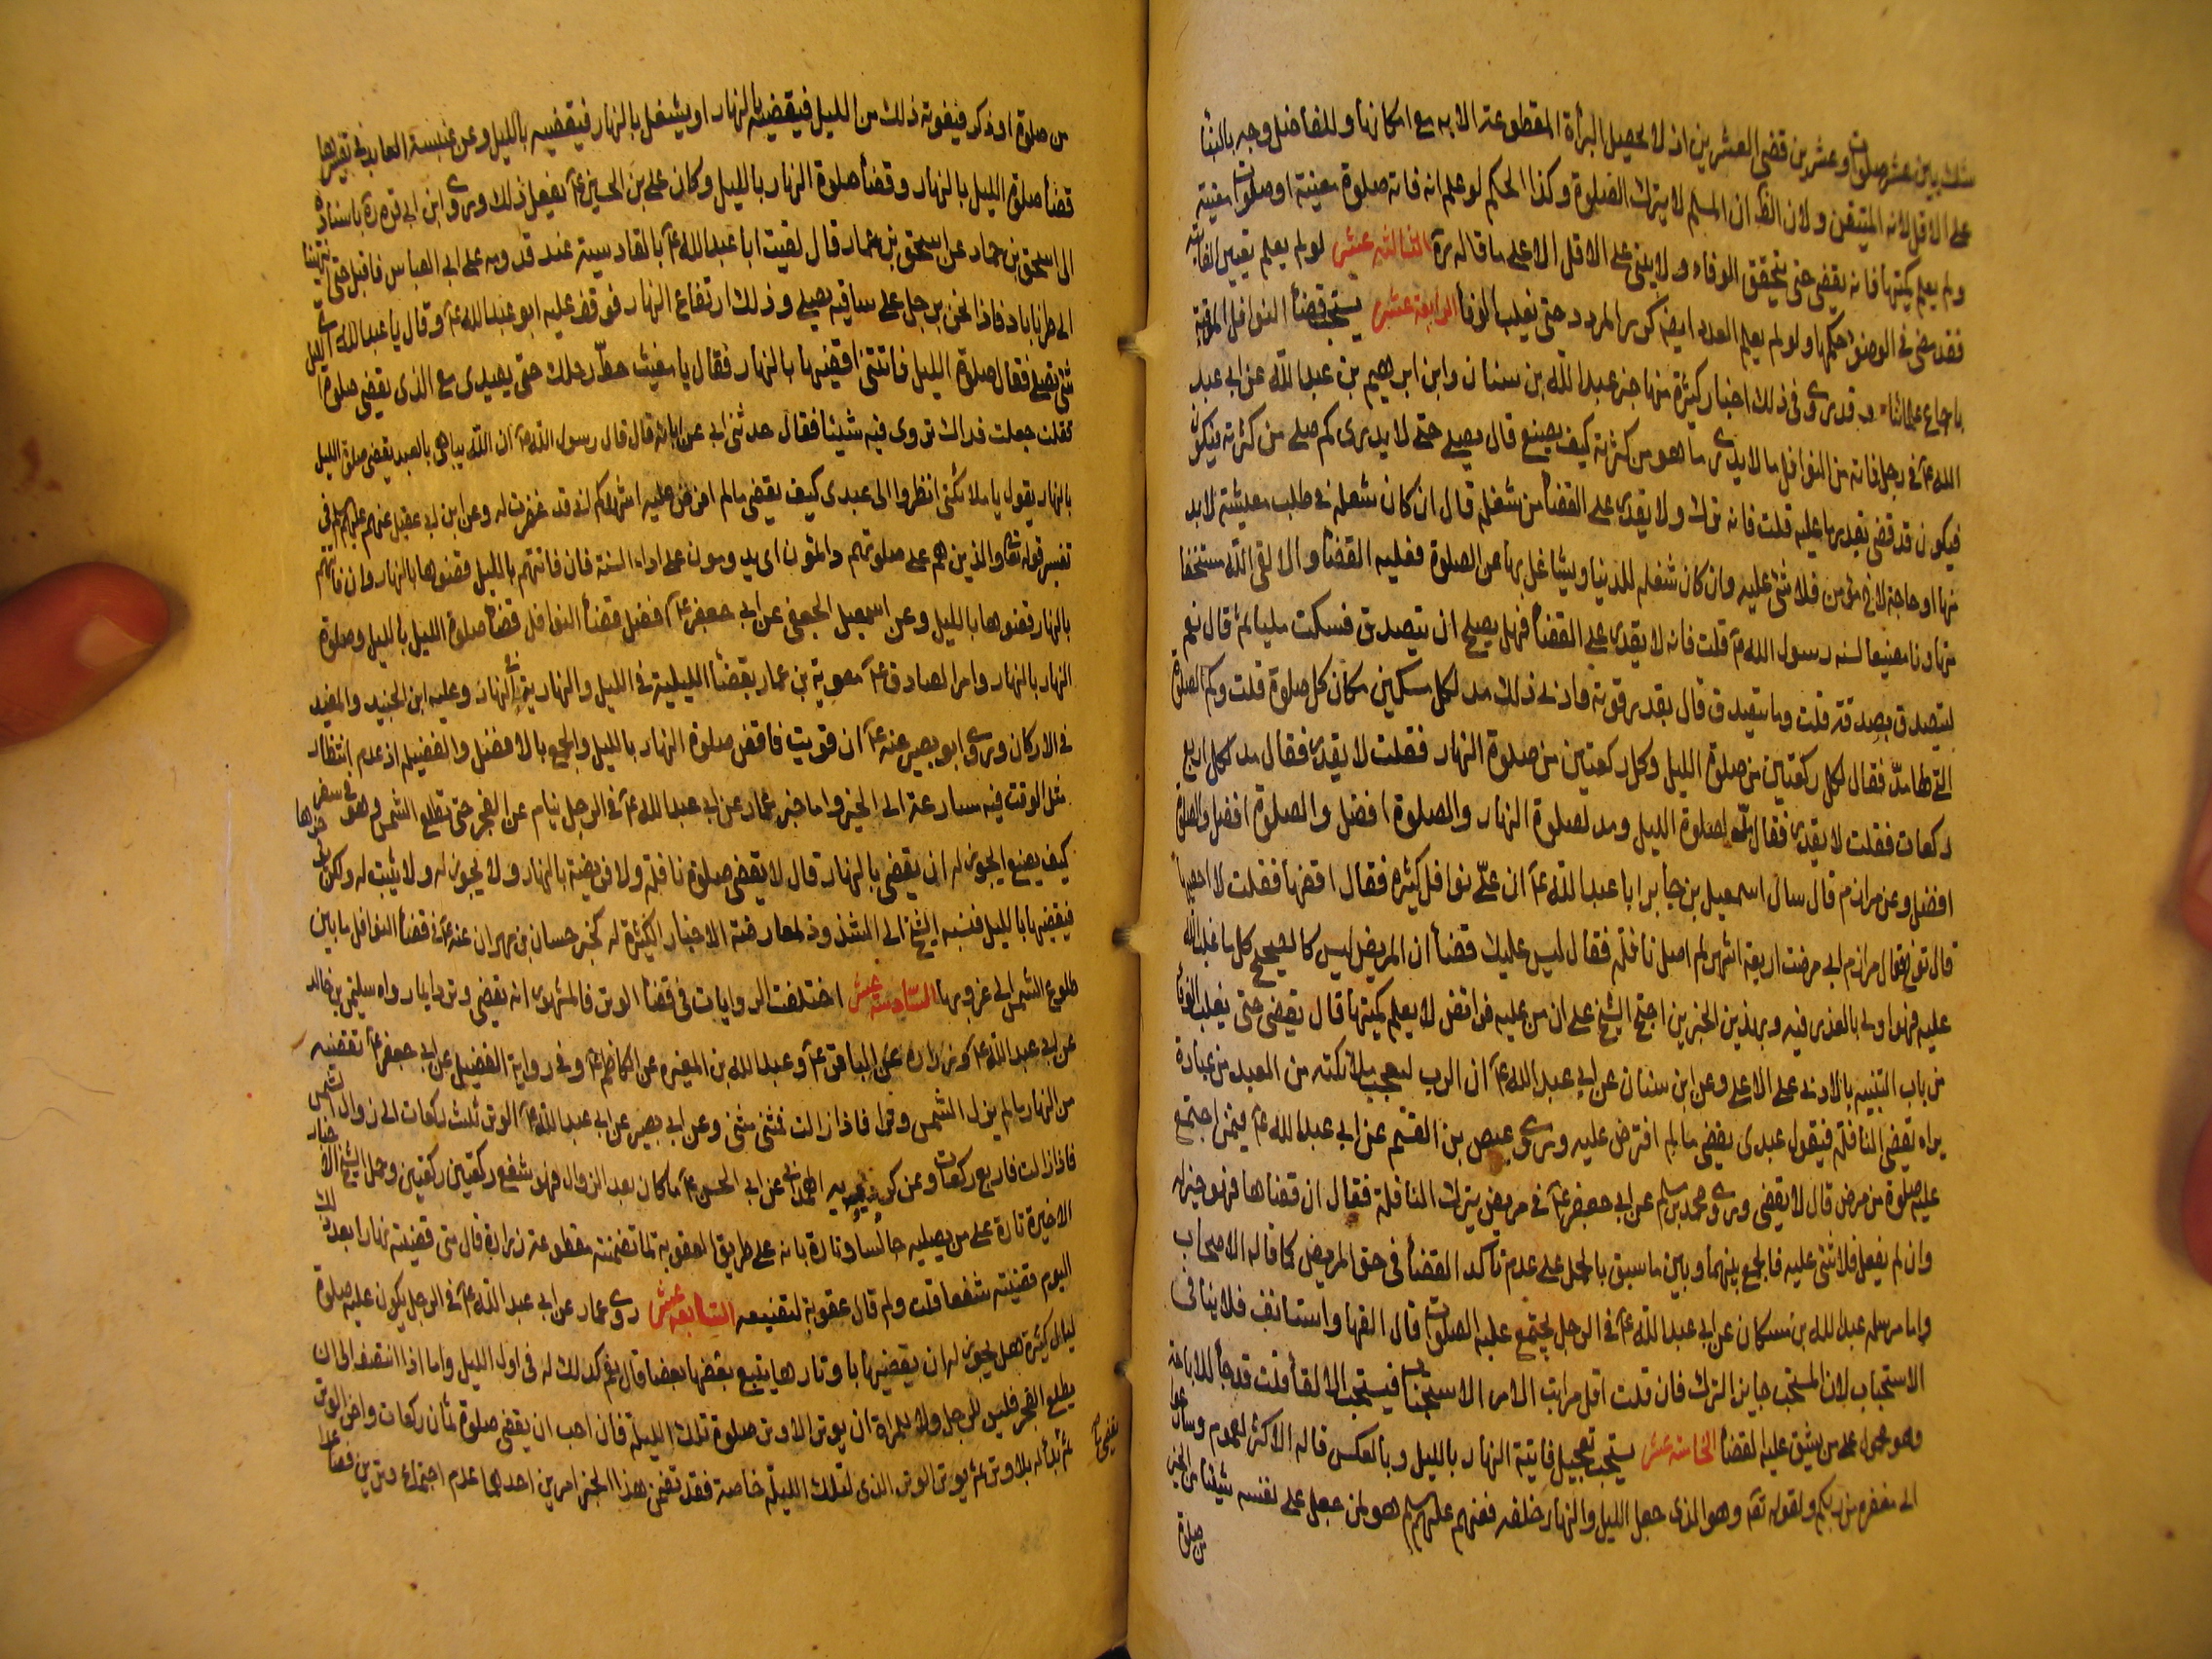 شك بين عشر صلوات وعشرين قضى العشرين اذ لا يحصل البرأة المقطوعة الا به مع امكانها وللفاضل وجه بالبنأ
على الاقل لانه المتيقن ولان الظ ان المسلم لا يترك الصلوة وكذا الحكم لو علم انه فاته صلوة معينة او صلوات معينة
ولم يعلم كميتها فانه يقضى حتى يتحقق الوفاء ولا يبنى على الاقل الا على ما قاله ره الثالثه عشر لو لم يعلم تعيين الفائتة
فقد مضى فى الوضوء حكمها ولو لم يعلم العدد ايضا كرر المردد حتى يغلب الوفا الرابعة عشر يستحب قضأ النوافل الموقتة
باجماع علمائنا وقد روى فى ذلك اخبار كثيرة منها خبر عبدالله بن سنان وابن ابرهيم بن عبدالله عن ابى عبد
الله ع فى رجل فاته من النوافل ما لا يدرى ما هو من كثرته كيف يصنع قال يصلى حتى لا يدرى كم صلى من كثرته فيكون
فيكون قد قضى بقدر ما عليه قلت فانه ترك ولا يقدر على القضأ من شغله قال ان كان شغله فى طلب معيشة لا بد
منها او حاجة لاخ مؤمن فلا شئ عليه وان كان شغله للدنيا ويشاغل بها عن الصلوة فعليه القضأ والا لقى الله مستخفا
متهاونا مضيعا لسنة رسول الله ص قلت فانه لا يقدر على القضأ فهل يصلح ان يتصدق فسكت مليا ثم قال نعم
ليتصدق بصدقة قلت وما يتصدق قال بقدر قوته وادنى ذلك مد لكل مسكين مكان كل صلوة قلت وكم الصلوة
التى لها مد فقال لكل ركعتين من صلوة الليل وكل ركعتين من صلوة النهار فقلت لا يقدر فقال مد لكل اربع
ركعات فقلت لا يقدر فقال مد لصلوة الليل ومد لصلوة النهار والصلوة افضل والصلوة افضل والصلوة
افضل وعن مرازم قال سال اسمعيل بن جابر ابا عبدالله ع ان على نوافل كثيره فقال اقضها فقلت لا احصيها
قال توخ وقال مرازم انى مرضت اربعة اشهر لم اصل نافلة فقال ليس عليك قضأ ان المريض ليس كالصحيح كل ما غلب الله
عليه فهو اولى بالعذر فيه وبهذين الخبرين احتج الشيخ على ان من عليه فرائض لا يعلم كميتها قال يقضى حتى يغلب الوفأ
من باب التنبيه بالادنى على الاعلى وعن ابن سنان عن ابى عبدالله ع ان الرب ليعجب ملائكته من العبد من عباده
يراه يقضى النافلة فيقول عبدى يقضى ما لم افترض عليه وروى عيص بن القسم عن ابى عبدالله ع فيمن اجتمع
عليه صلوة من مرض قال لا يقضى وروى محمد بن مسلم عن ابى جعفر ع فى مريض يترك النافلة فقال ان قضاها فهو خير له
وان لم يفعل فلا شئ عليه فالجمع بينهما وبين ما سبق بالحمل على عدم تأكد القضأ فى حق المريض كما قاله الاصحاب
واما مرسله عبدالله بن مسكان عن ابى عبدالله ع فى الرجل يجتمع عليه الصلوات قال القها واستانف فلا ينافى
الاستحباب لان المستحب جايز الترك فان قلت اقل مراتب الامر الاستحباب فيستحب الالقأ قلت قد جأ للاباحة
وهو محمول على من يشق عليه القضأ الخامسة عشر يستحب تعجيل فايتة النهار بالليل وبالعكس قاله الاكثر لعموم وسارعوا
الى مغفرة من ربكم ولقوله تعه وهو الذى جعل الليل والنهار خلفه فعنهم عليهم سلم هو لمن جعل على نفسه شيئا من الخير
من صلوة
من صلوة او ذكر فيفوته ذلك من الليل فيقضيه بالنهار او يشغل بالنهار فيقضيه بالليل وعن عنبسة العابد فى تفسيرها
قضأ صلوة الليل بالنهار وقضأ صلوة النهار بالليل وكان على بن الحسين ع يفعل ذلك وروى ابن ابى قره ره باسناده
الى اسحق بن حماد عن اسحق بن عمار قال لقيت ابا عبدالله ع بالقادسية عند قدومه على ابى العباس فاقبل حتى انتهينا
الى طرناباد فاذا نحن برجل على ساقيه يصلى وذلك ارتفاع النهار فوقف عليه ابو عبدالله ع وقال يا عبدالله اى
شئ تصلى فقال صلوة الليل فاتتنى اقضيها بالنهار فقال يا معتب حط رحلك حتى يصلى مع الذى يقضى صلوة الليل
فقلت جعلت فداك تروى فيه شيئا فقال حدثنى ابى عن ابائه قال قال رسول الله ص ان الله يباهى بالعبد يقضى صلوة الليل
بالنهار يقول يا ملائكتى انظروا الى عبدى كيف يقضى ما لم افرض عليه اشهدكم انى قد غفرت له وعن ابن ابى عقيل عنهم عليهم سلم فى
تفسير قوله تعه والذين هم على صلوتهم دائمون اى يدومون على اداء السنة فان فاتتهم بالليل قضوها بالنهار وان فاتتهم
بالنهار قضوها بالليل وعن اسمعيل الجعفى عن ابى جعفر ع افضل قضأ النوافل قضأ صلوة الليل بالليل وصلوة
النهار بالنهار وامر الصادق ع معوية بن عمار بقضأ الليلية فى الليل والنهارية فى النهار وعليه ابن الجنيد والمفيد
فى الاركان وروى ابو بصير عنه ع ان قويت فاقض صلوة النهار بالليل والجمع بالافضل والفضيلة اذ عدم انتظار
مثل الوقت فيه مسارعة الى الخير واما خبر عمار عن ابى عبدالله ع فى الرجل ينام عن الفجر حتى تطلع الشمس وهو فى سفر
كيف يصنع ايجوز له ان يقضى بالنهار قال لا يقضى صلوة نافلة ولا فريضة بالنهار ولا يجوز له ولا يثبت له ولكن يؤخرها
فيقضيها بالليل فنسبه الشيخ الى الشذوذ لمعارضة الاخبار الكثيرة له كخبر حسان بن مهران عنه ع فى قضأ النوافل ما بين
طلوع الشمس الى غروبها السادسة عشر اختلفت الروايات فى قضأ الوتر فالمشهور انه يقضى وترا دايما رواه سليمن بن خالد
عن ابى عبدالله ع وزراره عن الباقر ع وعبدالله بن المغيره عن الكاظم ع وفى رواية الفضيل عن ابى جعفر ع تقضيه
من النهار ما لم يزل الشمس وترا فاذا زالت فمثنى مثنى وعن ابى بصير عن ابى عبدالله ع الوتر ثلث ركعات الى زوال الشمس
فاذا زالت فاربع ركعات وعن كردويه الهمدانى عن ابى الحسن ع ما كان بعد الزوال فهو شفع ركعتين ركعتين وحمل الشيخ الاخبار
الاخيرة تارة على من يصليه جالسا وتارة بانه على طريق العقوبه لما تضمنته مقطوعة زرارة قال متى قضيته نهارا بعد ذلك
اليوم قضيته شفعا قلت ولم قال عقوبة لتضييعه السابعة عشر روى عمار عن ابى عبدالله ع فى الرجل يكون عليه صلوة
ليال كثيرة هل يجوز له ان يقضيها باوتارها يتبع بعضها بعضا قال نعم كذلك له فى اول الليل واما اذا انتصف الى ان
يطلع الفجر فليس للرجل ولا للمراة ان يوتر الا وتر صلوة تلك الليلة فان احب ان يقضى صلوة ثمان ركعات واخر الوتر
ثم بدأ له بلا وتر ثم يوتر الوتر الذى لتلك الليلة خاصة فقد تضمن هذا الخبر امرين احدهما عدم اجتماع وترين قضأ